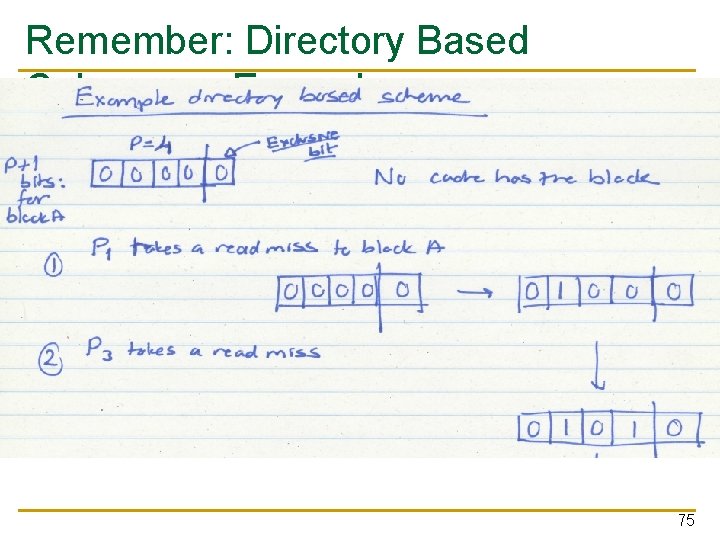 Remember: Directory Based
Example directory based scheme
P=4
Exclusive
bit
P+1
bits:
for
block A
0 0 0 0 0
No cache has the block
① P1 takes a read miss to block A
0 0 0 0 0 → 0 1 0 0 0
② P3 takes a read miss
0 1 0 1 0
75